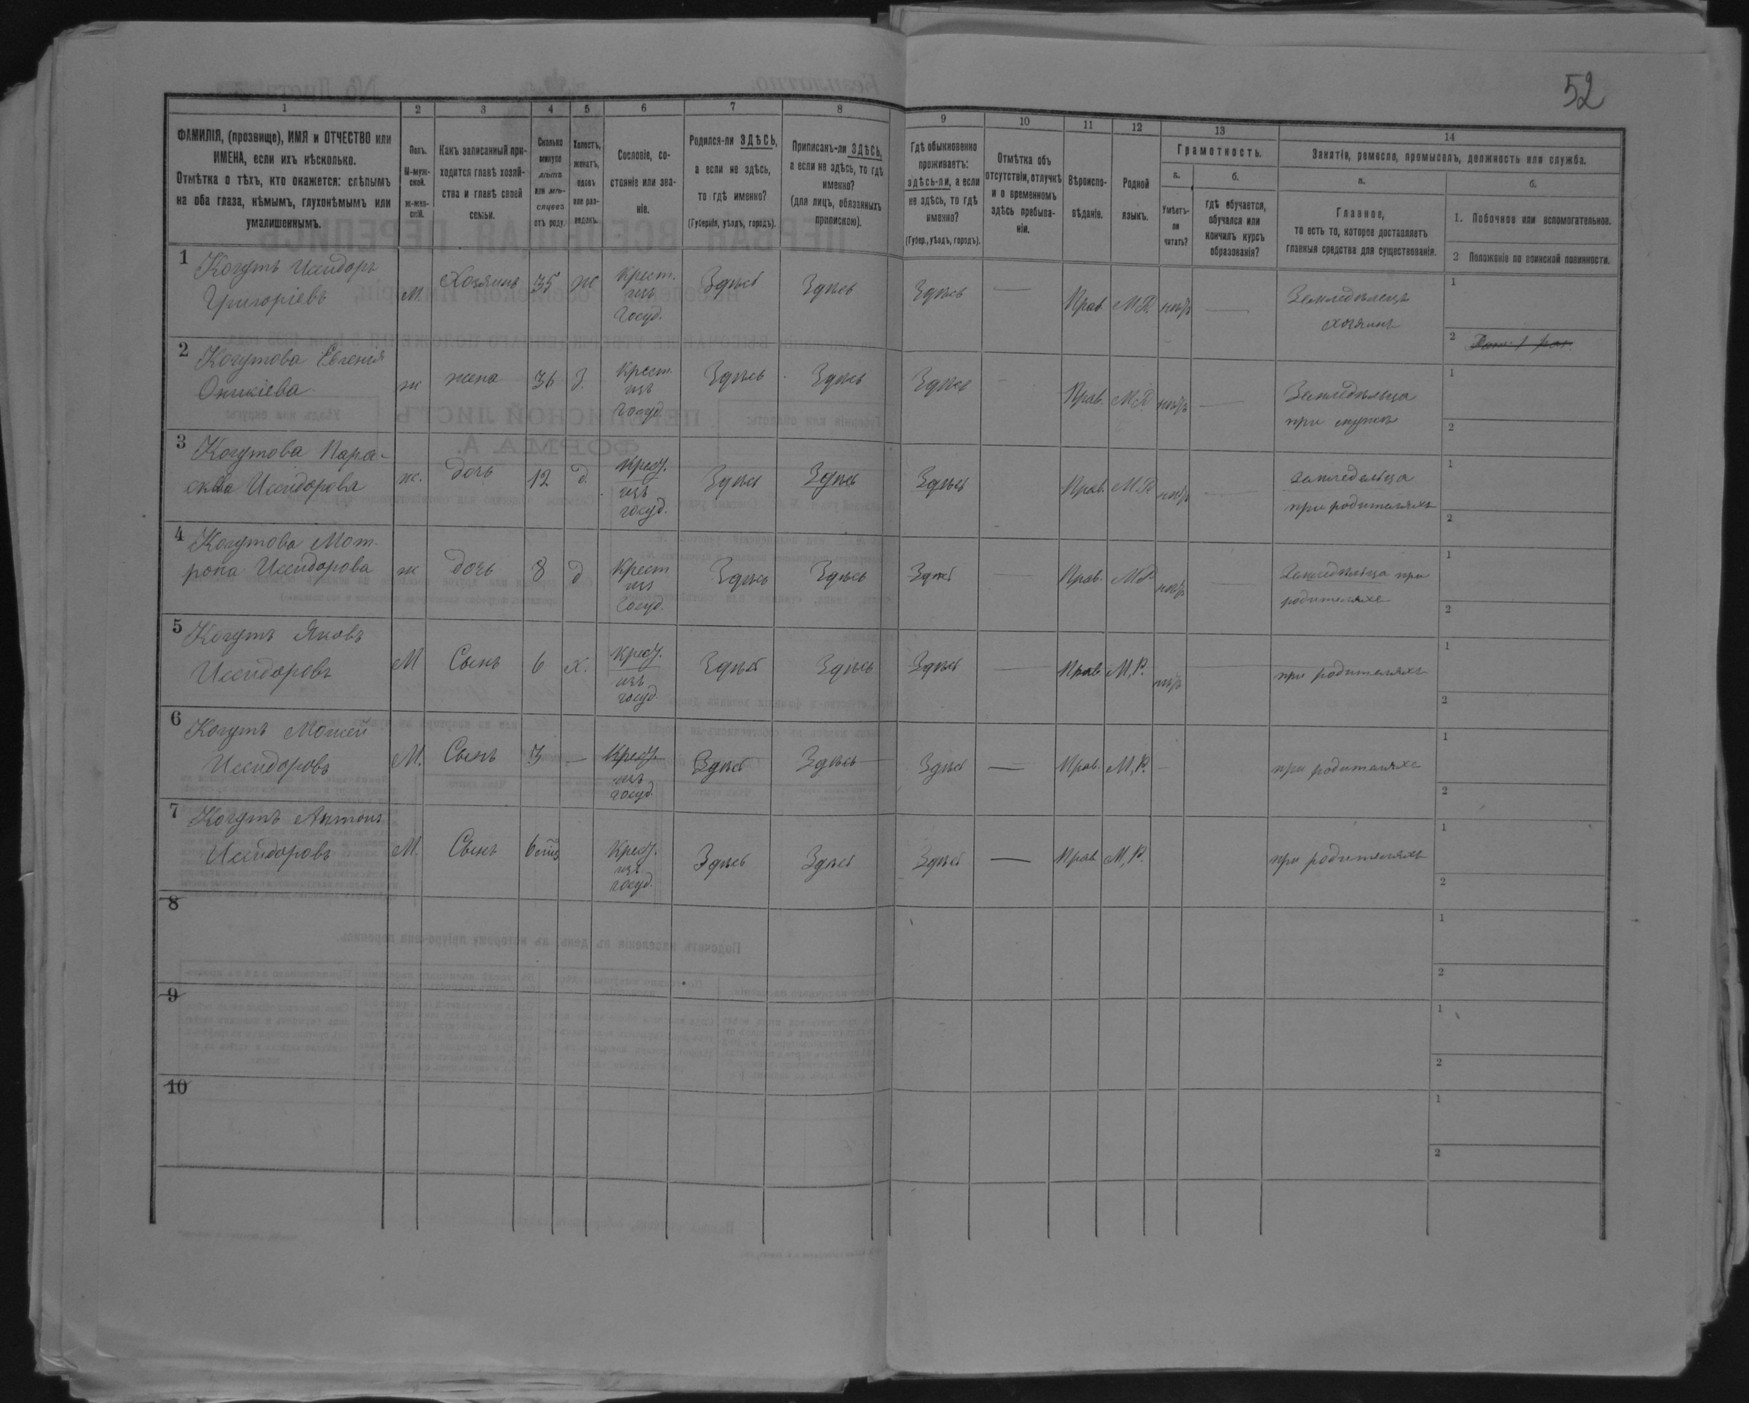 52
1 2 3 4 5 6 7 8 9 10 11 12 13 14
ФАМИЛІЯ, (прозвище), ИМЯ и ОТЧЕСТВО или ИМЕНА, если ихъ нѣсколько.
Отмѣтка о тѣхъ, кто окажется: слѣпымъ на оба глаза, нѣмымъ, глухонѣмымъ или умалишеннымъ.
Полъ. М-муж-ской. ж-жен-скій.
Какъ записанный при-ходится главѣ хозяй-ства и главѣ своей семьи.
Сколько минуло лѣтъ или мѣ-сяцевъ отъ роду.
Холостъ, женатъ, вдовъ или раз-веденъ.
Сословіе, со-стояніе или зва-ніе.
Родился-ли ЗДѢСЬ, а если не здѣсь, то гдѣ именно?
(Губернія, уѣздъ, городъ).
Приписанъ-ли ЗДѢСЬ, а если не здѣсь, то гдѣ именно?
(для лицъ, обязанныхъ припискою).
Гдѣ обыкновенно проживаетъ: здѣсь-ли, а если не здѣсь, то гдѣ именно?
(Губер., уѣздъ, городъ).
Отмѣтка объ отсутствіи, отлучкѣ и о временномъ здѣсь пребыва-ніи.
Вѣроиспо-вѣданіе.
Родной языкъ.
Грамотность.
а. Умѣетъ-ли читать?
б. гдѣ обучается, обучался или кончилъ курсъ образованія?
Занятія, ремесло, промыселъ, должность или служба.
а. Главное, то есть то, которое доставляетъ главныя средства для существованія.
б. 1. Побочное или вспомогательное.
2 Положеніе по воинской повинности.
1 Когутъ Исидоръ Григоріевъ М. Хозяинъ 35 ж Крест. изъ Госуд. Здѣсь Здѣсь Здѣсь — Прав. М.Р. нѣтъ — Земледѣлецъ хозяинъ 1 2
2 Когутова Евгенія Оникіева ж жена 36 З. Крест. изъ госуд. Здѣсь Здѣсь Здѣсь — Прав. М.Р. нѣтъ — Земледѣлица при мужѣ 1 2
3 Когутова Пара-скева Исидорова ж. дочь 12 д. Крест. изъ госуд. Здѣсь Здѣсь Здѣсь — Прав. М.Р. нѣтъ — Земледѣлица при родителяхъ 1 2
4 Когутова Мот-рона Исидорова ж дочь 8 д Крест изъ Госуд. Здѣсь Здѣсь Здѣсь — Прав. М.Р. нѣтъ — Земледѣлица при родителяхъ 1 2
5 Когутъ Яковъ Исидоровъ М Сынъ 6 х. Крест. изъ госуд. Здѣсь Здѣсь Здѣсь — Прав М.Р. нѣтъ — при родителяхъ 1 2
6 Когутъ Моисей Исидоровъ М. Сынъ 3 — Крест. изъ госуд. Здѣсь Здѣсь Здѣсь — Прав. М.Р. — при родителяхъ 1 2
7 Когутъ Антонъ Исидоровъ М. Сынъ Крест. изъ госуд. Здѣсь Здѣсь Здѣсь — Прав М.Р. при родителяхъ 1 2
8 1 2
9 1 2
10 1 2